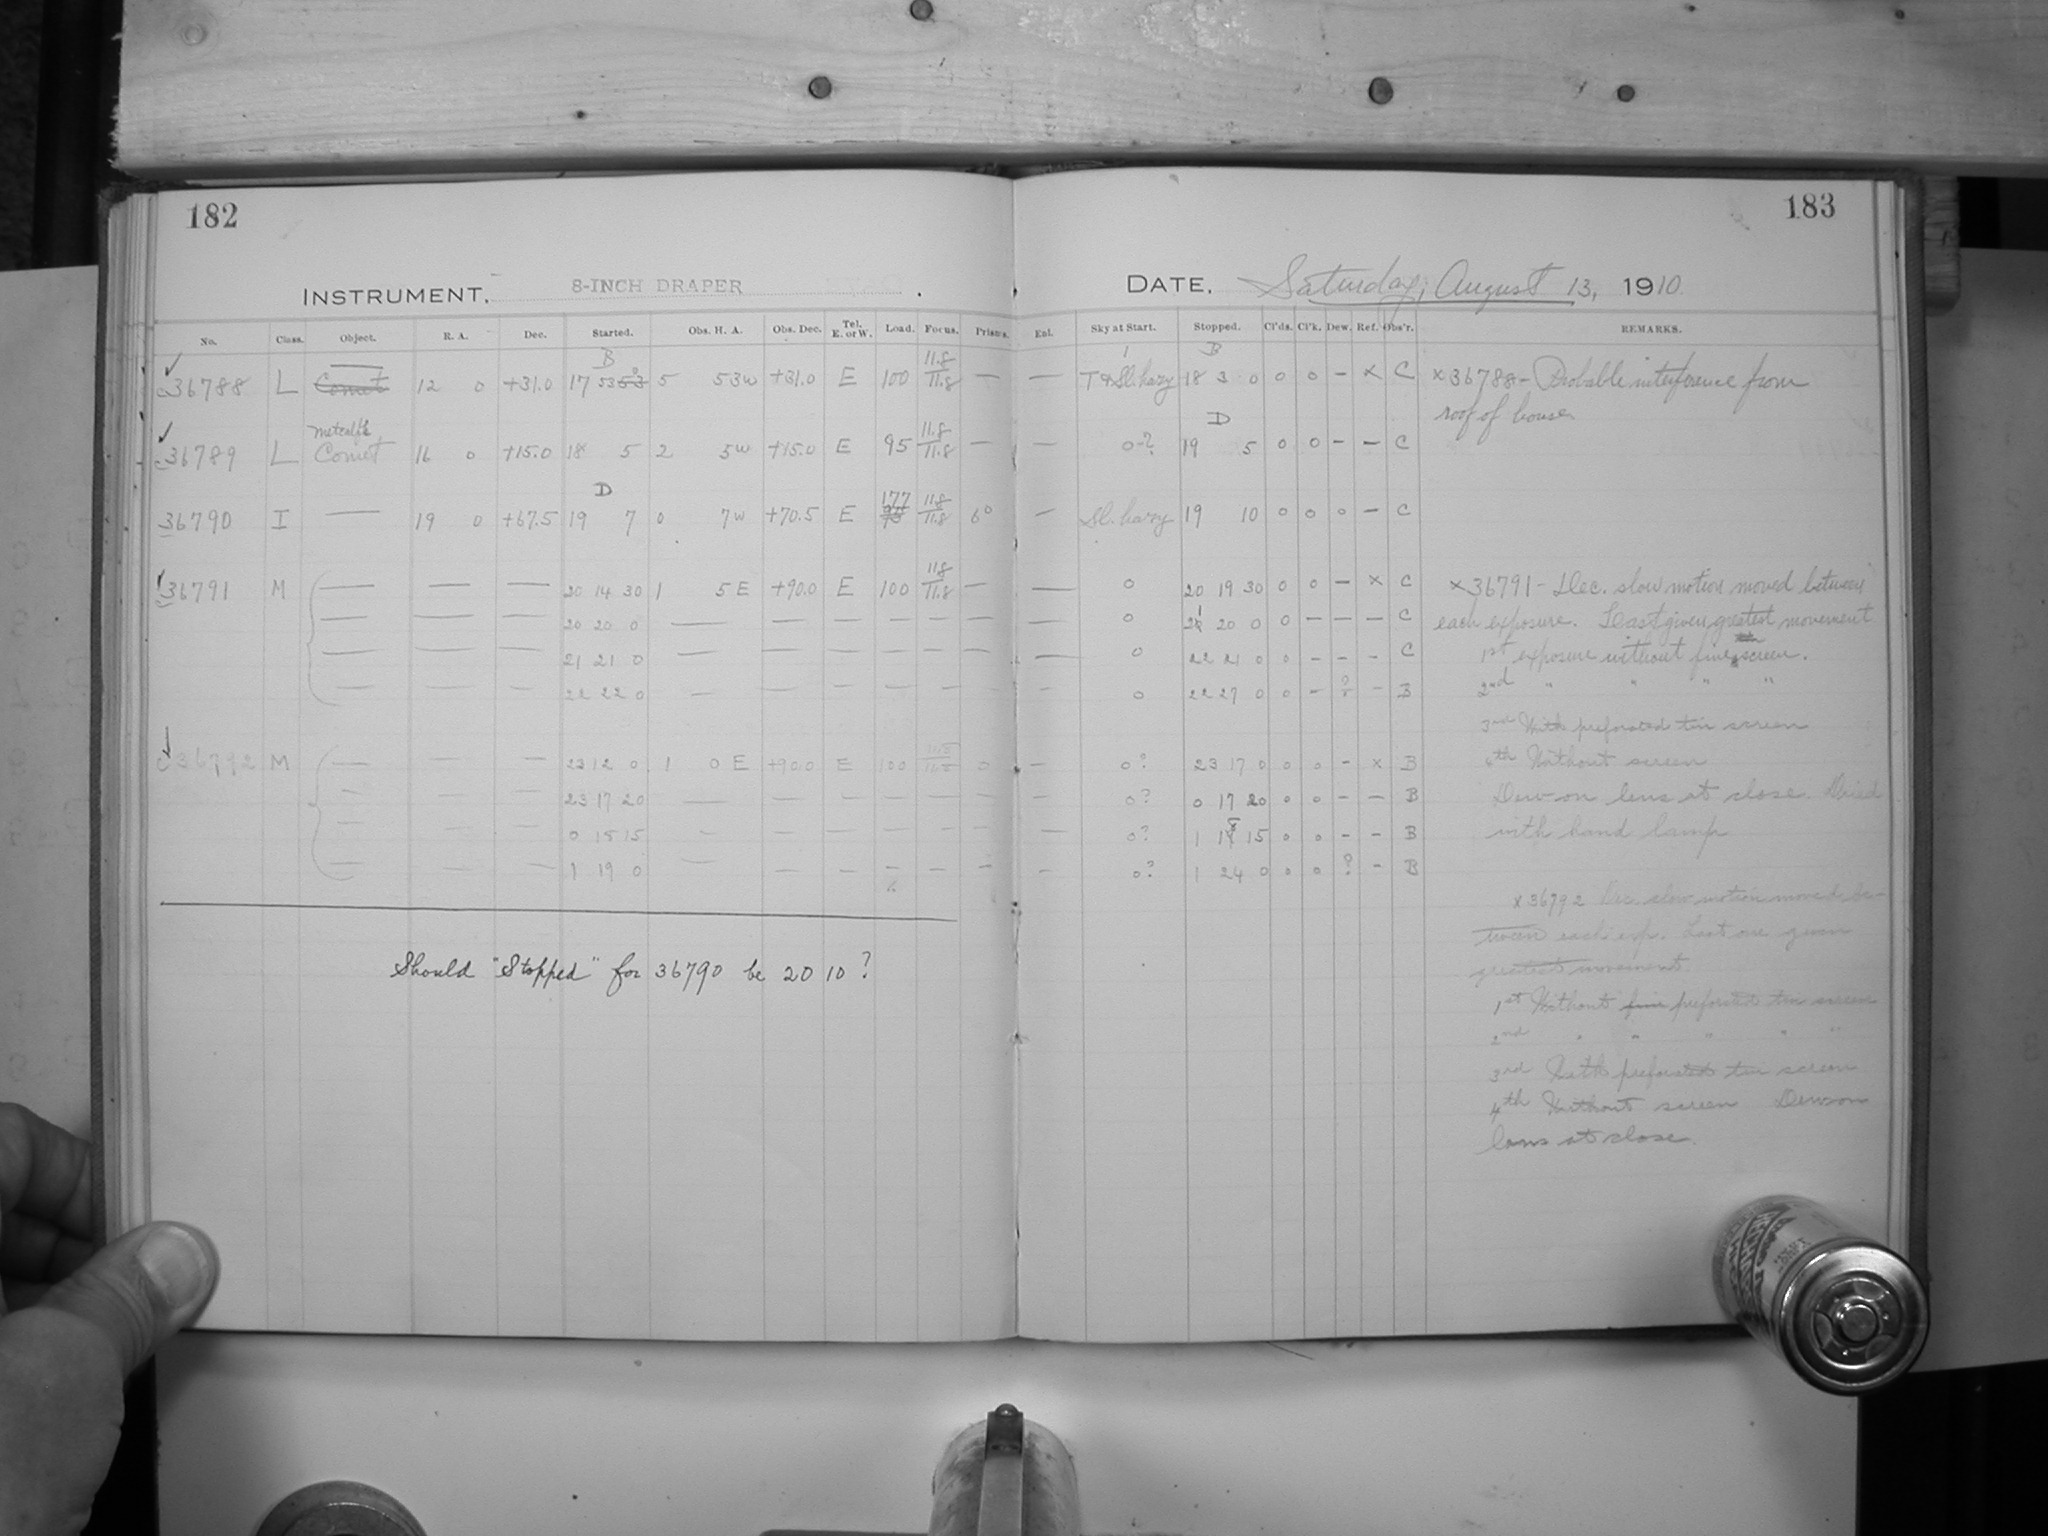 182
183
INSTRUMENT. 8-INCH DRAPER .
DATE. Saturday, August 13, 1910
No. Class. Object. R. A. Dec. Started. Obs. H. A. Obs. Dec. Tel. E. or W. Load. Focus. Prisms. Enl. Sky at Start. Stopped. Cl'ds. Cl'k. Dew. Ref. Obs'r. REMARKS.
B 11.8 B
36788 L Comet 12 0 +31.0 17 53 53 5 53w +31.0 E 100 11.8 — — Sl. hazy 18 3 0 0 0 — x C x 36788 - Probable interference from
roof of house
Metcalf's 11.8 D
36789 L Comet 16 0 +15.0 18 5 2 5w +15.0 E 95 11.8 — — 0-? 19 5 0 0 — — C
D 177 11.8
36790 I — 19 0 +67.5 19 7 0 7w +70.5 E 11.8 6° — Sl. hazy 19 10 0 0 0 — C
11.8
36791 M — — — 20 14 30 1 5 E +90.0 E 100 11.8 — — 0 20 19 30 0 0 — x C x 36791 - Dec. slow motion moved between
— — — 20 20 0 — — — — — — — 0 21 20 0 0 — — — C each exposure. Last given greatest movement
— — — 21 21 0 — — — — — — — 0 22 21 0 0 — — — C 1st exposure without fine screen.
— — — 22 22 0 — — — — — — — 0 22 27 0 0 — ? — B 2nd " " " "
3rd With preforated tin screen
36792 M — — — 23 12 0 1 0 E +90.0 E 100 11.8 0 — 0? 23 17 0 0 0 — x B 4th Without screen
— — — 23 17 20 — — — — — — — 0? 0 17 20 0 0 — — B Dew on lens at close. Dried
— — — 0 18 15 — — — — — — — 0? 1 18 15 0 0 — — B with hand lamp
— — — 1 19 0 — — — — — — — 0? 1 24 0 0 0 ? — B
x 36792 Dec. slow motion moved be-
tween each exp. Last one given
greatest movement.
Should "Stopped" for 36790 be 20 10 ?
1st Without fine preforated tin screen
2nd " " " " "
3rd With preforated tin screen
4th Without screen Dew on
lens at close.